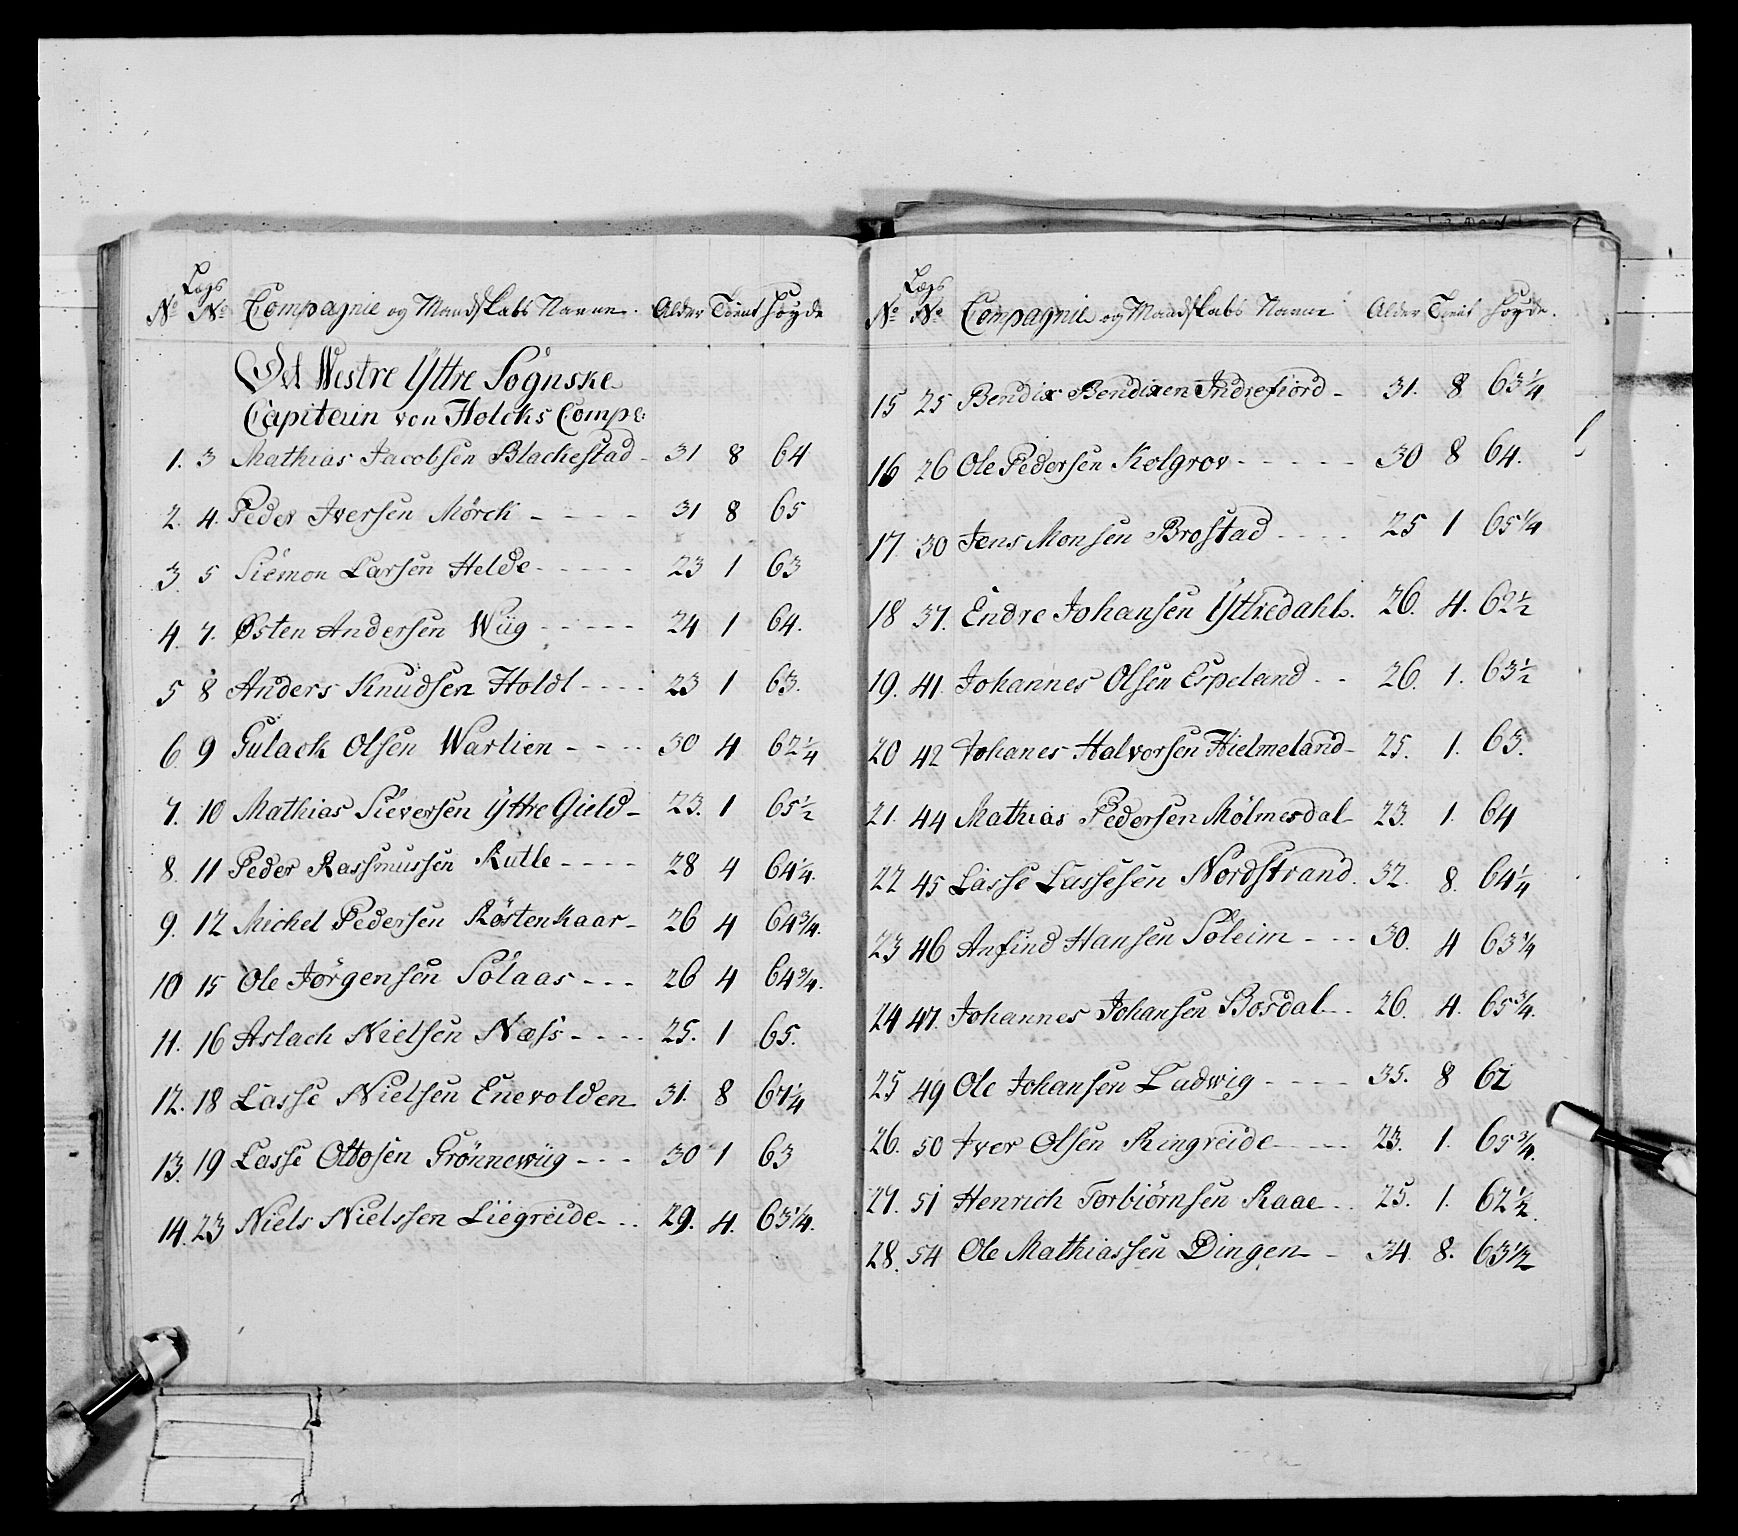 Lægs
No No Compagnie og Mandskabs Navne. Alder Tient Høyde
Det Westre Ÿttre Sognske
Capitein von Holcks Comp:
1. 3 Mathias Jacobsen Blackestad - 31 8 64
2. 4. Peder Iversen Mörch - - - - 31 8 65
3. 5 Siemon Larsen Helde - - - - - 23 1 63
4 7. Østen Andersen Wiig - - - - - 24 1 64.
5 8 Anders Knudsen Holdt - - - - 23 1 63.
6 9 Gulack Olsen Warlien - - - - 30 4 62 1/4
7. 10 Mathias Sieversen Ÿttre Gield - 23. 1 65 1/2
8. 11 Peder Rassmussen Rutle - - - - 28 4 64 1/4.
9. 12 Michel Pedersen Röstenkaar - 26 4 64 3/4.
10 15 Ole Jörgensen Sölaas - - - 26 4 64 3/4.
11. 16 Aslach Nielsen Næss - - - - 25. 1 65.
12. 18 Lasse Nielsen Enevolden 31. 8 67 1/4
13. 19 Lasse Ottosen Grönnewiig - - - 30 1 63
14. 23 Niels Nielssen Liegreide - - - 29. 4. 63 1/4.
Lægs
No No Compagnie og Mandskabs Navne Alder Tient Høyde.
15 25 Bendix Bendixen Indrefiord - 31. 8 63 1/4
16 26 Ole Pedersen Kolgrov - - - - - 30 8 64.
17 30 Jens Monsen Brostad - - - - 25 1 65 1/4
18 37. Endre Johansen Ÿttredahl. 26. 4. 62 1/2
19. 41. Johannes Olsen Espeland - - 26. 1. 63 1/2
20 42 Johanes Halvorsen Hielmeland - 25. 1. 63.
21. 44 Mathias Pedersen Mölmesdal - 23. 1. 64
22 45 Lasse Lassesen Nordstrand. 32. 8. 64 1/4
23 46 Anfind Hansen Söleim - - - 30. 4 63 3/4
24 47. Johannes Johansen Bosdal - - 26. 4. 65 3/4.
25 49 Ole Johansen Ludwig - - - - 35. 8 62
26. 50 Iver Olsen Ringreide - - - - 23. 1. 65 3/4.
27. 51 Henrich Torbiörnsen Raae - - 25. 1. 62 1/2.
28. 54 Ole Mathiassen Dingen - - 34. 8. 63 1/2